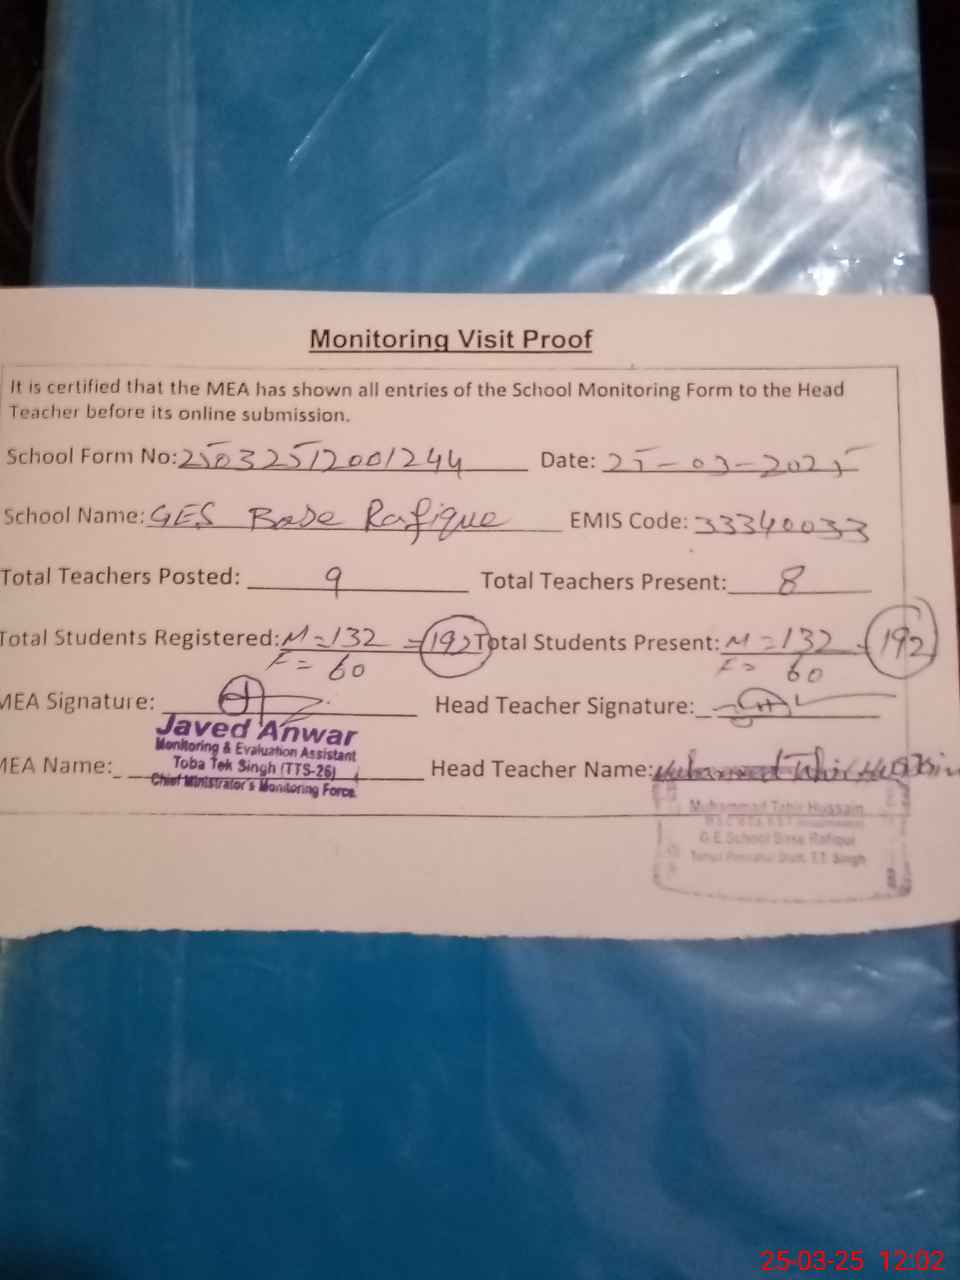 Monitoring Visit Proof
It is certified that the MEA has shown all entries of the School Monitoring Form to the Head
Teacher before its online submission.
School Form No: 25032512001244 Date: 25-03-2025
School Name: GES Base Rafique EMIS Code: 33340033
Total Teachers Posted: 9 Total Teachers Present: 8
Total Students Registered: M=132 = 192 Total Students Present: M=132 = 192
F= 60 F= 60
MEA Signature: Head Teacher Signature:
Javed Anwar
Monitoring & Evaluation Assistant
Toba Tek Singh (TTS-26)
Chief Minister's Monitoring Force.
MEA Name: Head Teacher Name: Muhammad Tahir Hussain
Muhammad Tahir Hussain
G.E.School Base Rafiqui
T.T. Singh
25-03-25 12:02